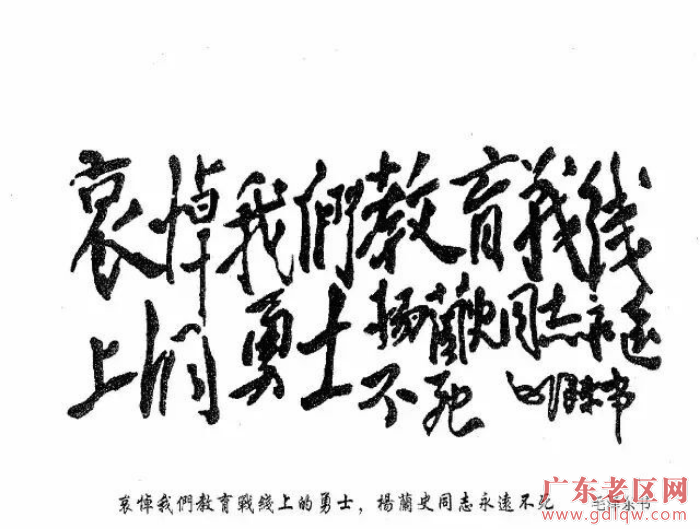 哀悼我們教育战线
上的勇士楊蘭史同志永远
不死 毛泽东书
哀悼我們教育戰线上的勇士，楊蘭史同志永遠不死 毛泽东书
广东老区网
www.gdlqw.com